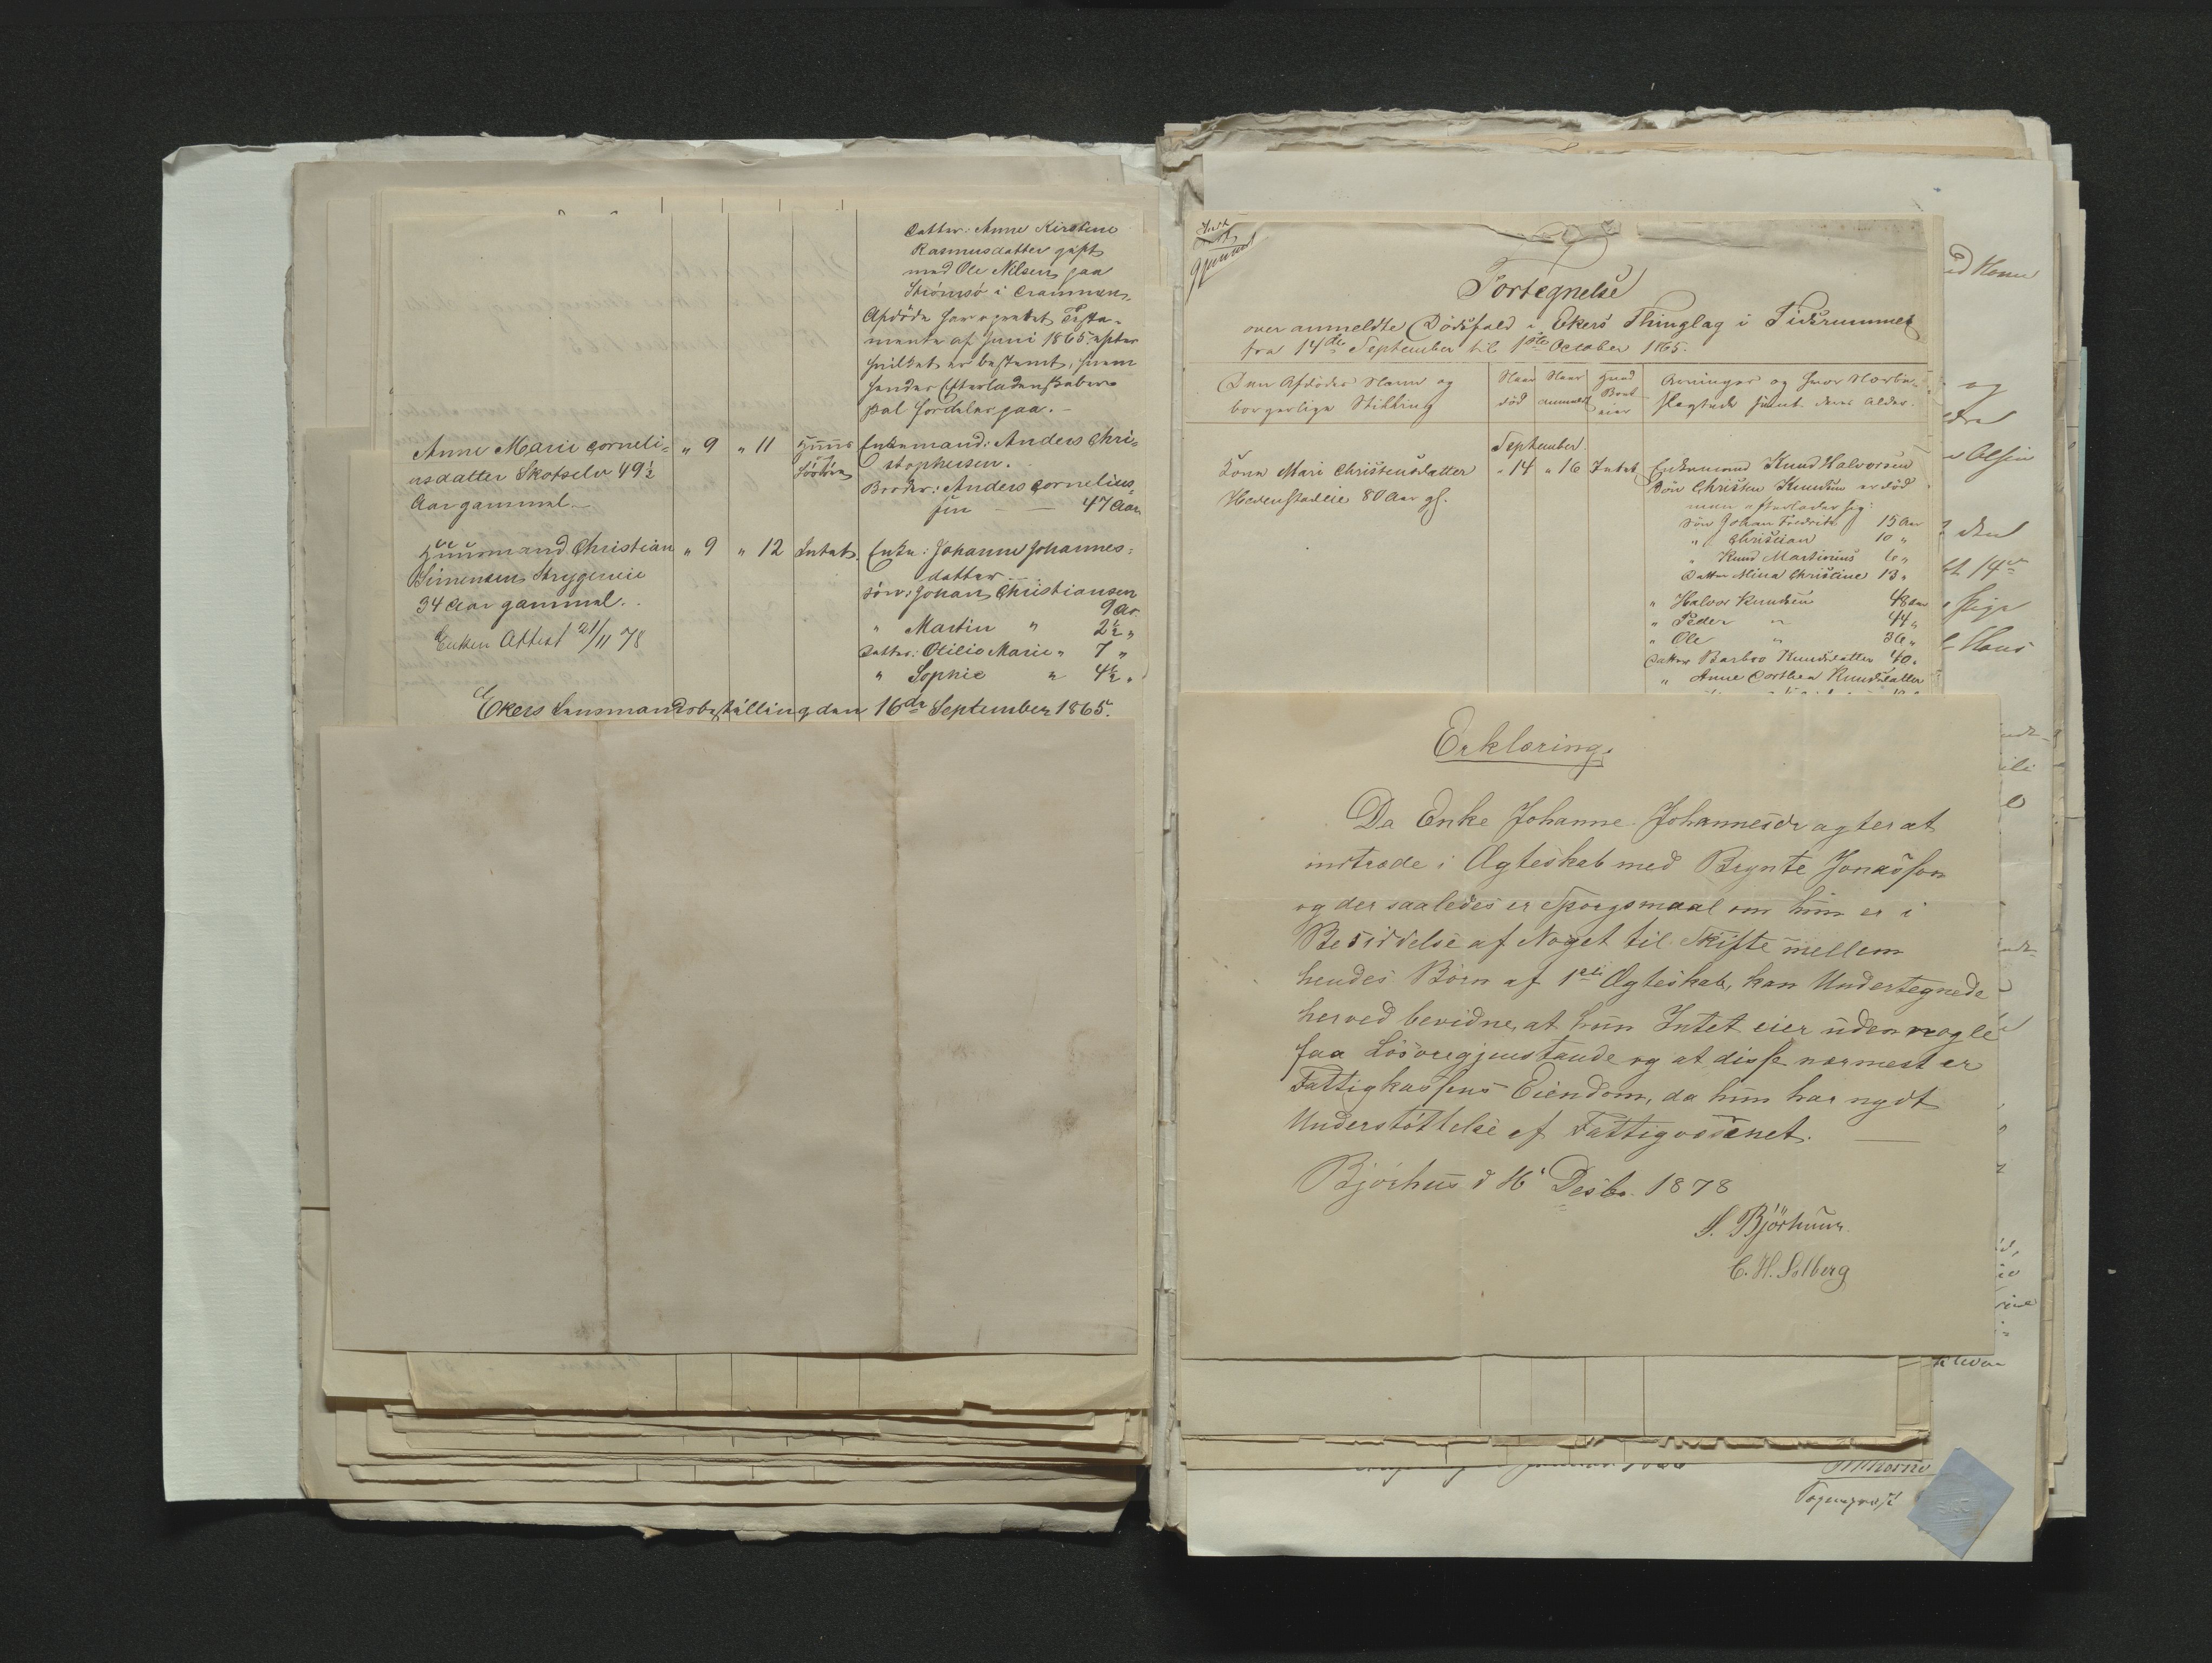 Datter: Anne Kirstine
Rasmusdatter gift
med Ole Nilsen paa
Strömsö i Drammen.
Afdöde har oprettet Testa-
mente af Juni 1865 efter
hvilket er bestemt, hvem
hendes Efterladenskaber
skal fordeles paa. -
Anne Marie Corneli-
usdatter Skotselv 49½
Aar gammel.
" 9 " 11 Huus og Lösöre
Enkemand: Anders Chri-
stophersen.
Broder: Anders Cornelius-
sen — — 47 Aar
Huusmand Christian
Simensen Strygereie
34 Aar gammel.
" 9 " 12 Intet.
Enke: Johanne Johannes-
datter
Sön: Johan Christiansen
9 Ar
" Martin " 2½ "
Datter: Otilie Marie " 7 "
" Sophie " 4½ "
Enken Attest 21/11 78
Ekers Lensmandsbestilling den 16de September 1865.
Fortegnelse
over anmeldte Dödsfald i Ekers Thinglag i Tidsrummet
fra 14de September til 1ste October 1865.
Den Afdödes Navn og
borgerlige Stilling
Naar död
Naar anmeldt
Arvinger og hvor Nærbe-
slægtede samt deres Alder.
September
Kone Mari Christensdatter
Hedenstadeie 80 Aar gl.
" 14 " 16 Intet
Enkemand Knud Halvorsen
Sön Christen Knudsen er död
men efterlader sig:
Sön Johan Fredrik 15 Aar
" Christian 10 "
" Knud Martinius 6 "
Datter Mina Christine 13 "
" Halvor Knudsen 48 Aar
" Peder " 44 "
" Ole " 36 "
Datter Barbro Knudsdatter 40 "
" Anne Dorthea Knudsdatter
Erklæring.
Da Enke Johanne Johannesdr agter at
indtræde i Ægteskab med Brynte Jonasson
og der saaledes er Spörgsmaal om hun er i
Besiddelse af Noget til Skifte mellem
hendes Börn af 1ste Ægteskab, kan Undertegnede
herved bevidne, at hun Intet eier uden nogle
faa Lösöregjenstande og at disse nærmest er
Fattigkassens Eiendom, da hun har nydt
Understöttelse af Fattigvæsenet.
Björhus d 16 Desbr. 1878
S. Björhuus.
C. H. Solberg